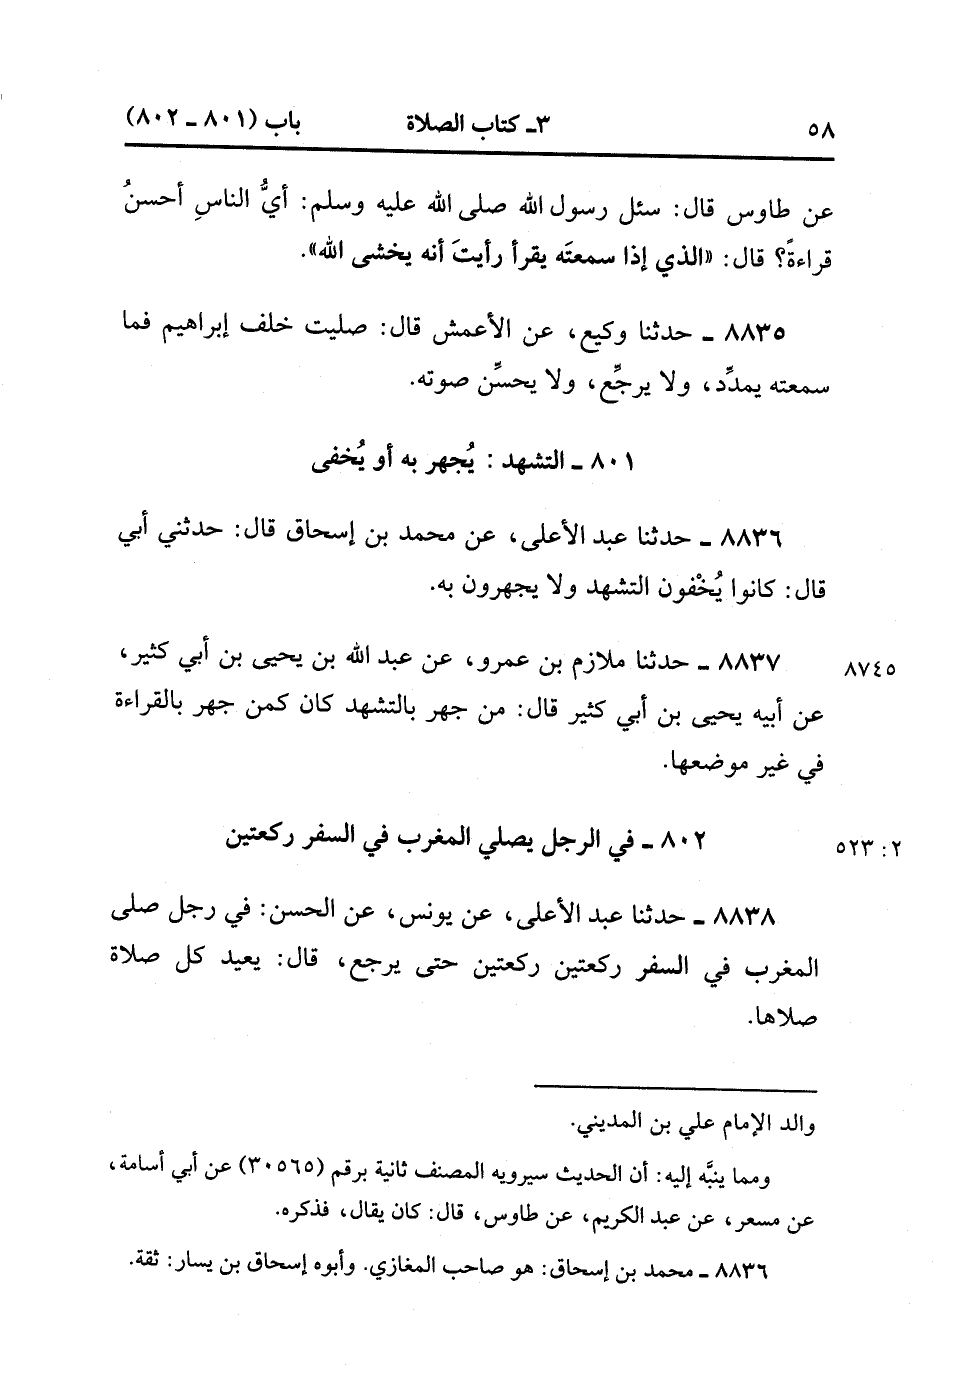 ٥٨ ٣ـ كتاب الصلاة باب (٨٠١ ـ ٨٠٢)
عن طاوس قال: سئل رسول الله صلى الله عليه وسلم: أيُّ الناسِ أحسنُ
قراءةً؟ قال: «الذي إذا سمعتَه يقرأ رأيتَ أنه يخشى الله».
٨٨٣٥ ـ حدثنا وكيع، عن الأعمش قال: صليت خلف إبراهيم فما
سمعته يمدِّد، ولا يرجِّع، ولا يحسِّن صوته.
٨٠١ ـ التشهد : يُجهر به أو يُخفى
٨٨٣٦ ـ حدثنا عبد الأعلى، عن محمد بن إسحاق قال: حدثني أبي
قال: كانوا يُخْفون التشهد ولا يجهرون به.
٨٧٤٥ ٨٨٣٧ ـ حدثنا ملازم بن عمرو، عن عبد الله بن يحيى بن أبي كثير،
عن أبيه يحيى بن أبي كثير قال: من جهر بالتشهد كان كمن جهر بالقراءة
في غير موضعها.
٢: ٥٢٣ ٨٠٢ ـ في الرجل يصلي المغرب في السفر ركعتين
٨٨٣٨ ـ حدثنا عبد الأعلى، عن يونس، عن الحسن: في رجل صلى
المغرب في السفر ركعتين ركعتين حتى يرجع، قال: يعيد كل صلاة
صلاها.
والد الإمام علي بن المديني.
ومما ينبَّه إليه: أن الحديث سيرويه المصنف ثانية برقم (٣٠٥٦٥) عن أبي أسامة،
عن مسعر، عن عبد الكريم، عن طاوس، قال: كان يقال، فذكره.
٨٨٣٦ ـ محمد بن إسحاق: هو صاحب المغازي. وأبوه إسحاق بن يسار: ثقة.